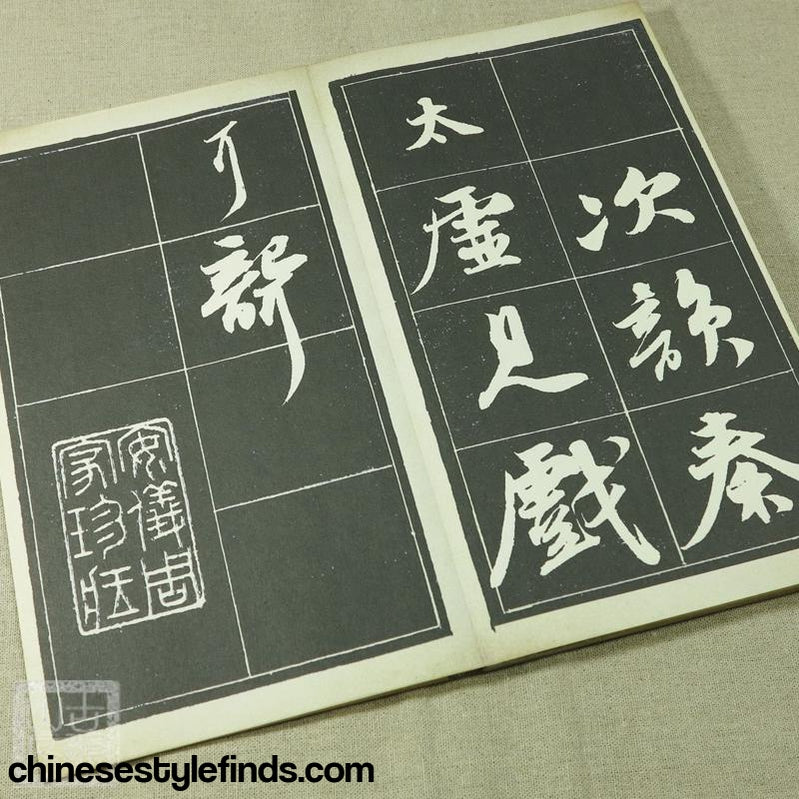 次韻秦
太虛見戲
耳聾
安儀周
家珍藏
chinesestylefinds.com